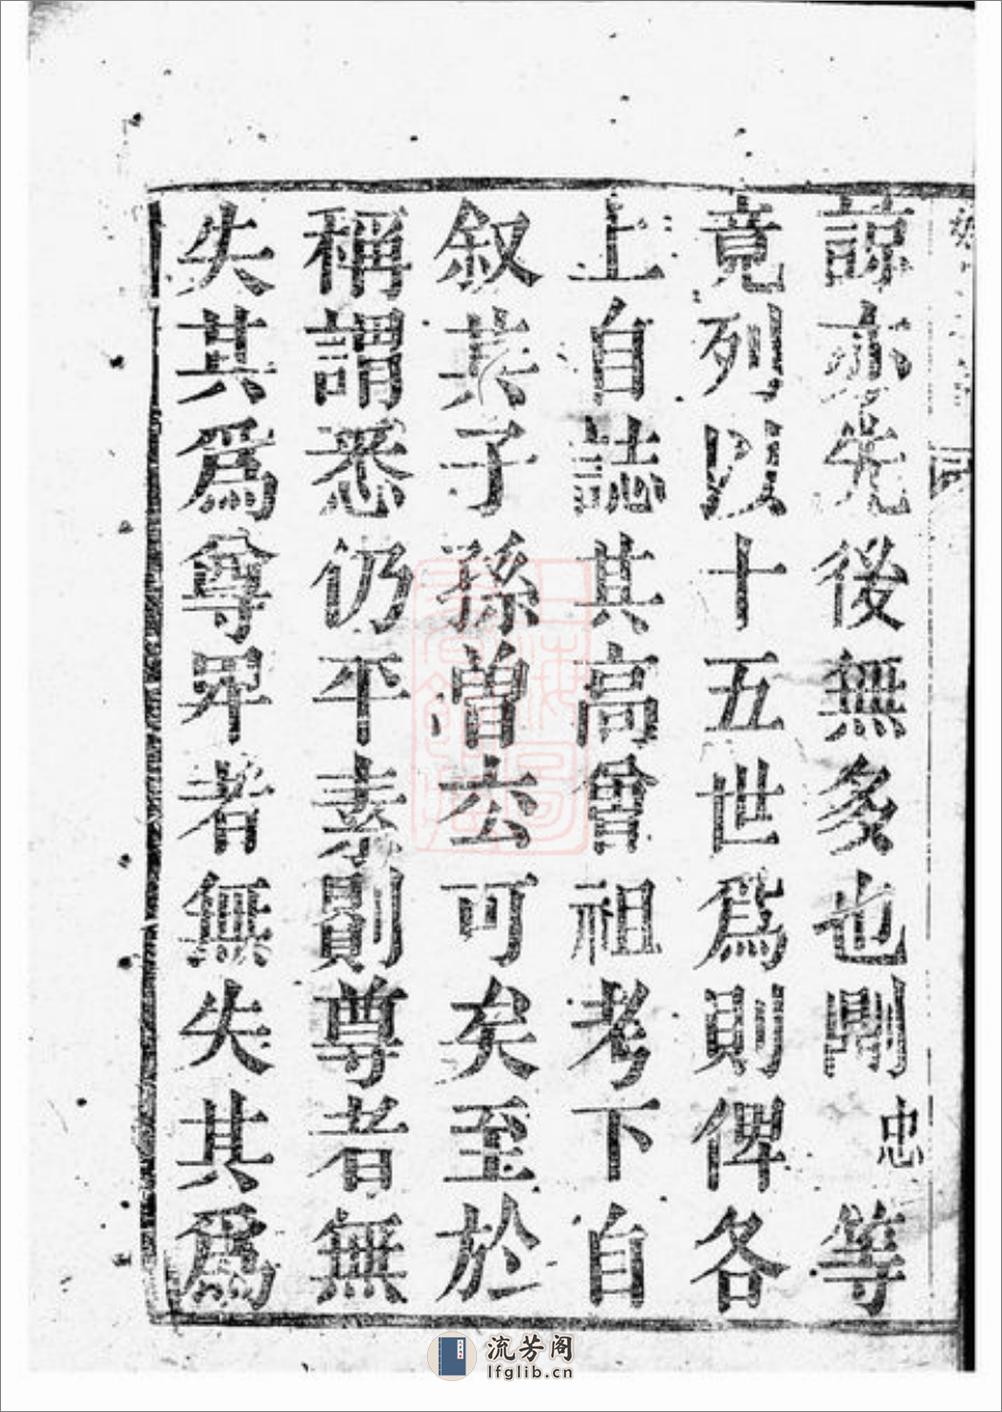 諒亦先後無多也剛忠等
竟列以十五世爲則俾各
上自誌其高曾祖考下自
叙其子孫曾玄可矣至於
稱謂悉仍平素則尊者無
失其爲尊卑者無失其爲
流芳阁
lfglib.cn